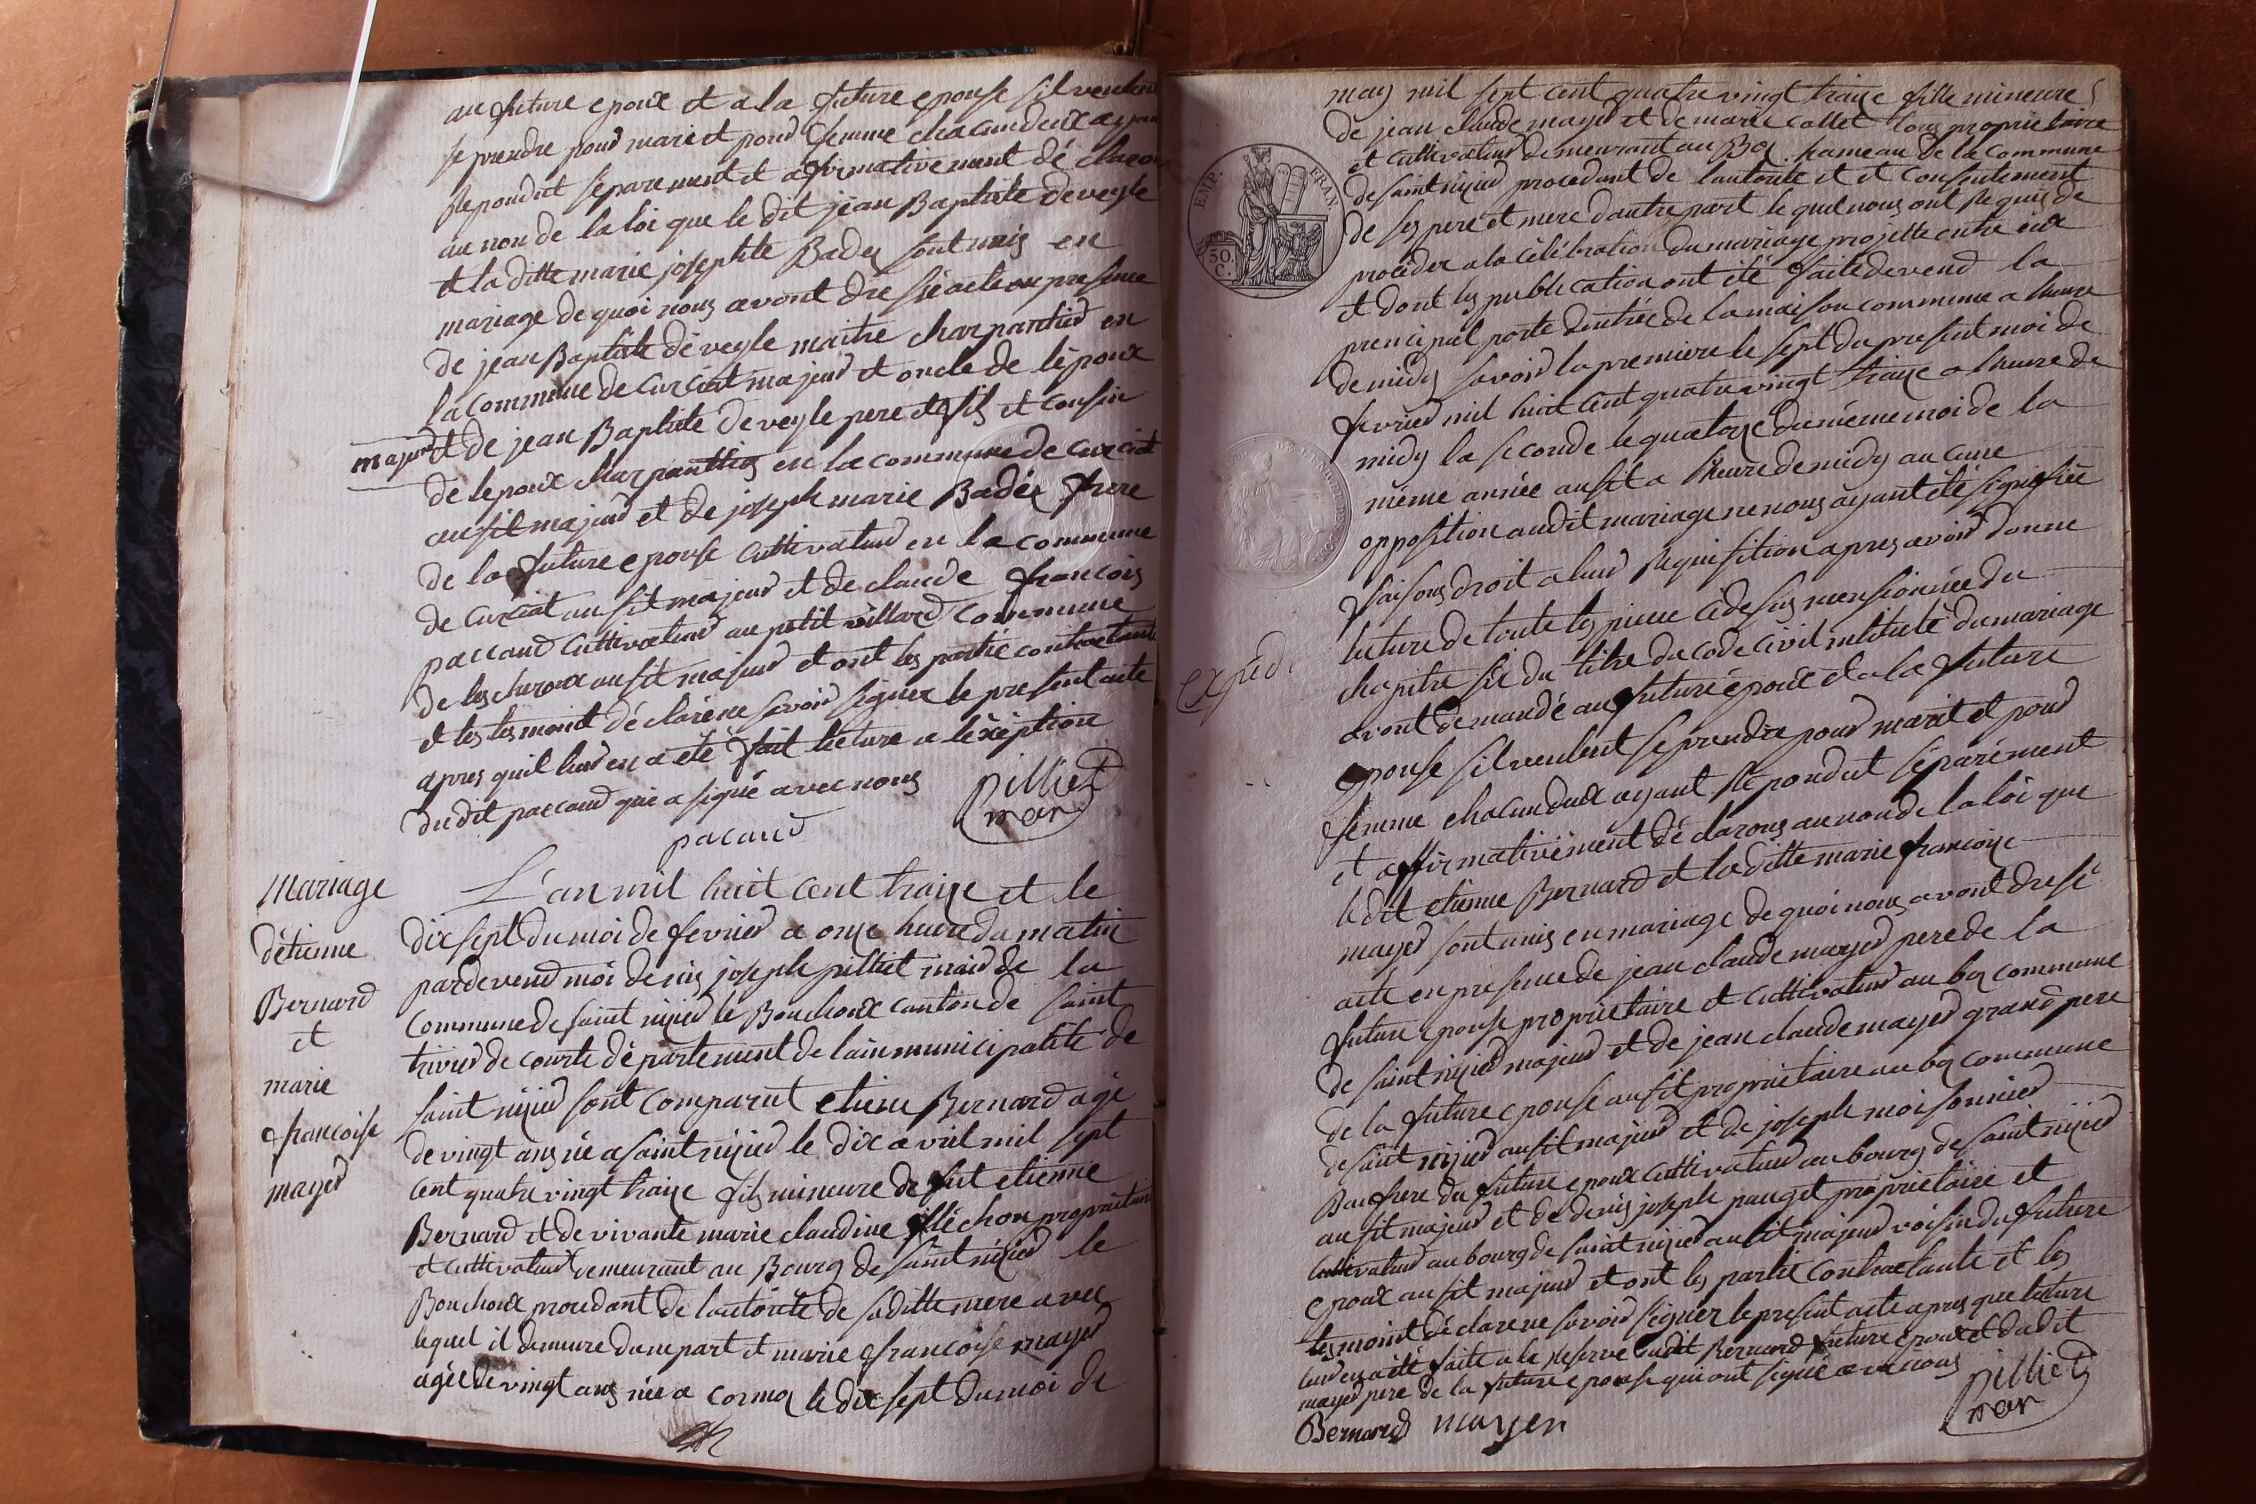 au future epoux et a la future epouse sil veulent
se prendre pour marie et pour femme chacun deux ayant
repondut séparément et afirmativement dé clarons
au non de la loi que le dit jean Baptiste deveyle
et la ditte marie josephte Badez sont unis en
mariage de quoi nous avont dressé acte en presence
de jean Baptiste deveyle maitre charpantier en
la commune de curciat majeur et oncle de lépoux
et de jean Baptiste deveyle pere et fils et cousin
majeur
de lepoux charpanttier en la commune de curciat
aussit majeur et de joseph marie Badéz frere
de la future epouse cultivateur en la commune
de curciat aussit majeur et de claude francois
paccaud cultivateur au petit villard commune
de les cheroux aussit majeur et ont les partie contractante
et les temoint déclaré ne savoir signer le present acte
apres quil leur en a été fait lecture a léxeption
du dit paccaud qui a signé avec nous
pilliet
mair
pacaud
Mariage
détienne
Bernard
et
marie
francoise
mayer
L'an mil huit cent traize et le
dix sept du moi de fevrier a onze heure du matin
pardevend moi denis joseph pilliet mair de la
commune de saint nizier le Bouchoux canton de saint
trivier de courte département de lain municipalité de
saint nizier sont comparut etiene Bernard agé
de vingt ans né a saint nizier le dix avril mil sept
cent quatre vingt traize fils mineure de fut etienne
Bernard et de vivante marie claudine fléchon propriétaire
et cultivateur demeurant au Bourg de saint nizier le
Bouchoux procedant de lautorité de saditte mere avec
lequel il demeure dune part et marie francoise mayer
agée de vingt ans née a cormoz le dix sept du moi de
may mil sept cent quatre vingt traize fille mineure
de jean claude mayer et de marie collet tous proprietaire
et cultivateur demeurant au Boz hameau de la commune
de saint nizier procedant de lautorité et et consentement
de ses pere et mere dautre part le quel nous ont requis de
procéder a la célébration du mariage projetté entre eux
et dont les publication ont été faite devend la
principal porte dentrée de la maison commune a lheure
de midy savoir la premiere le sept du present moi de
fevrier mil huit cent quatre vingt traize a lheure de
midy la seconde le quatorze du même moi de la
même année aussit a lheure de midy au cune
opposition audit mariage ne nous ayant été signifiée
faisons droit a leur requisition apres avoir donné
lecture de toute les piece cidesus mensionnée du
chapitre six du titre du code civil intitulé du mariage
avont demandé au future époux et a la future
epouse sil veulent se prendre pour marit et pour
femme chacun deux ayant repondut séparément
et affirmativement dé clarons au non de la loi que
le dit etienne Bernard et la ditte marie francoise
mayer sont unis en mariage de quoi nous avont dressé
acte en presence de jean claude mayer pere de la
future epouse propriétaire et cultivateur au boz commune
de saint nizier majeur et de jean claude mayer grand pere
de la future epouse aussit proprietaire au boz commune
de saint nizier aussit majeur et de joseph moissonnier
Baufrere du future epoux cultivateur au bourg de saint nizier
aussit majeur et de denis joseph pauget propriétaire et
cultivateur au bourg de saint nizier aussit majeur voisin du future
epoux aussit majeur et ont les partie contractante et les
temoint déclaré ne savoir signer le present acte apres que lecture
leur en a été faite a la reserve dudit Bernard future epoux et dudit
mayer pere de la future epouse qui ont signé avec nous
pilliet
mair
Bernard mayer
EMP. FRAN.
50.
C.
exped.